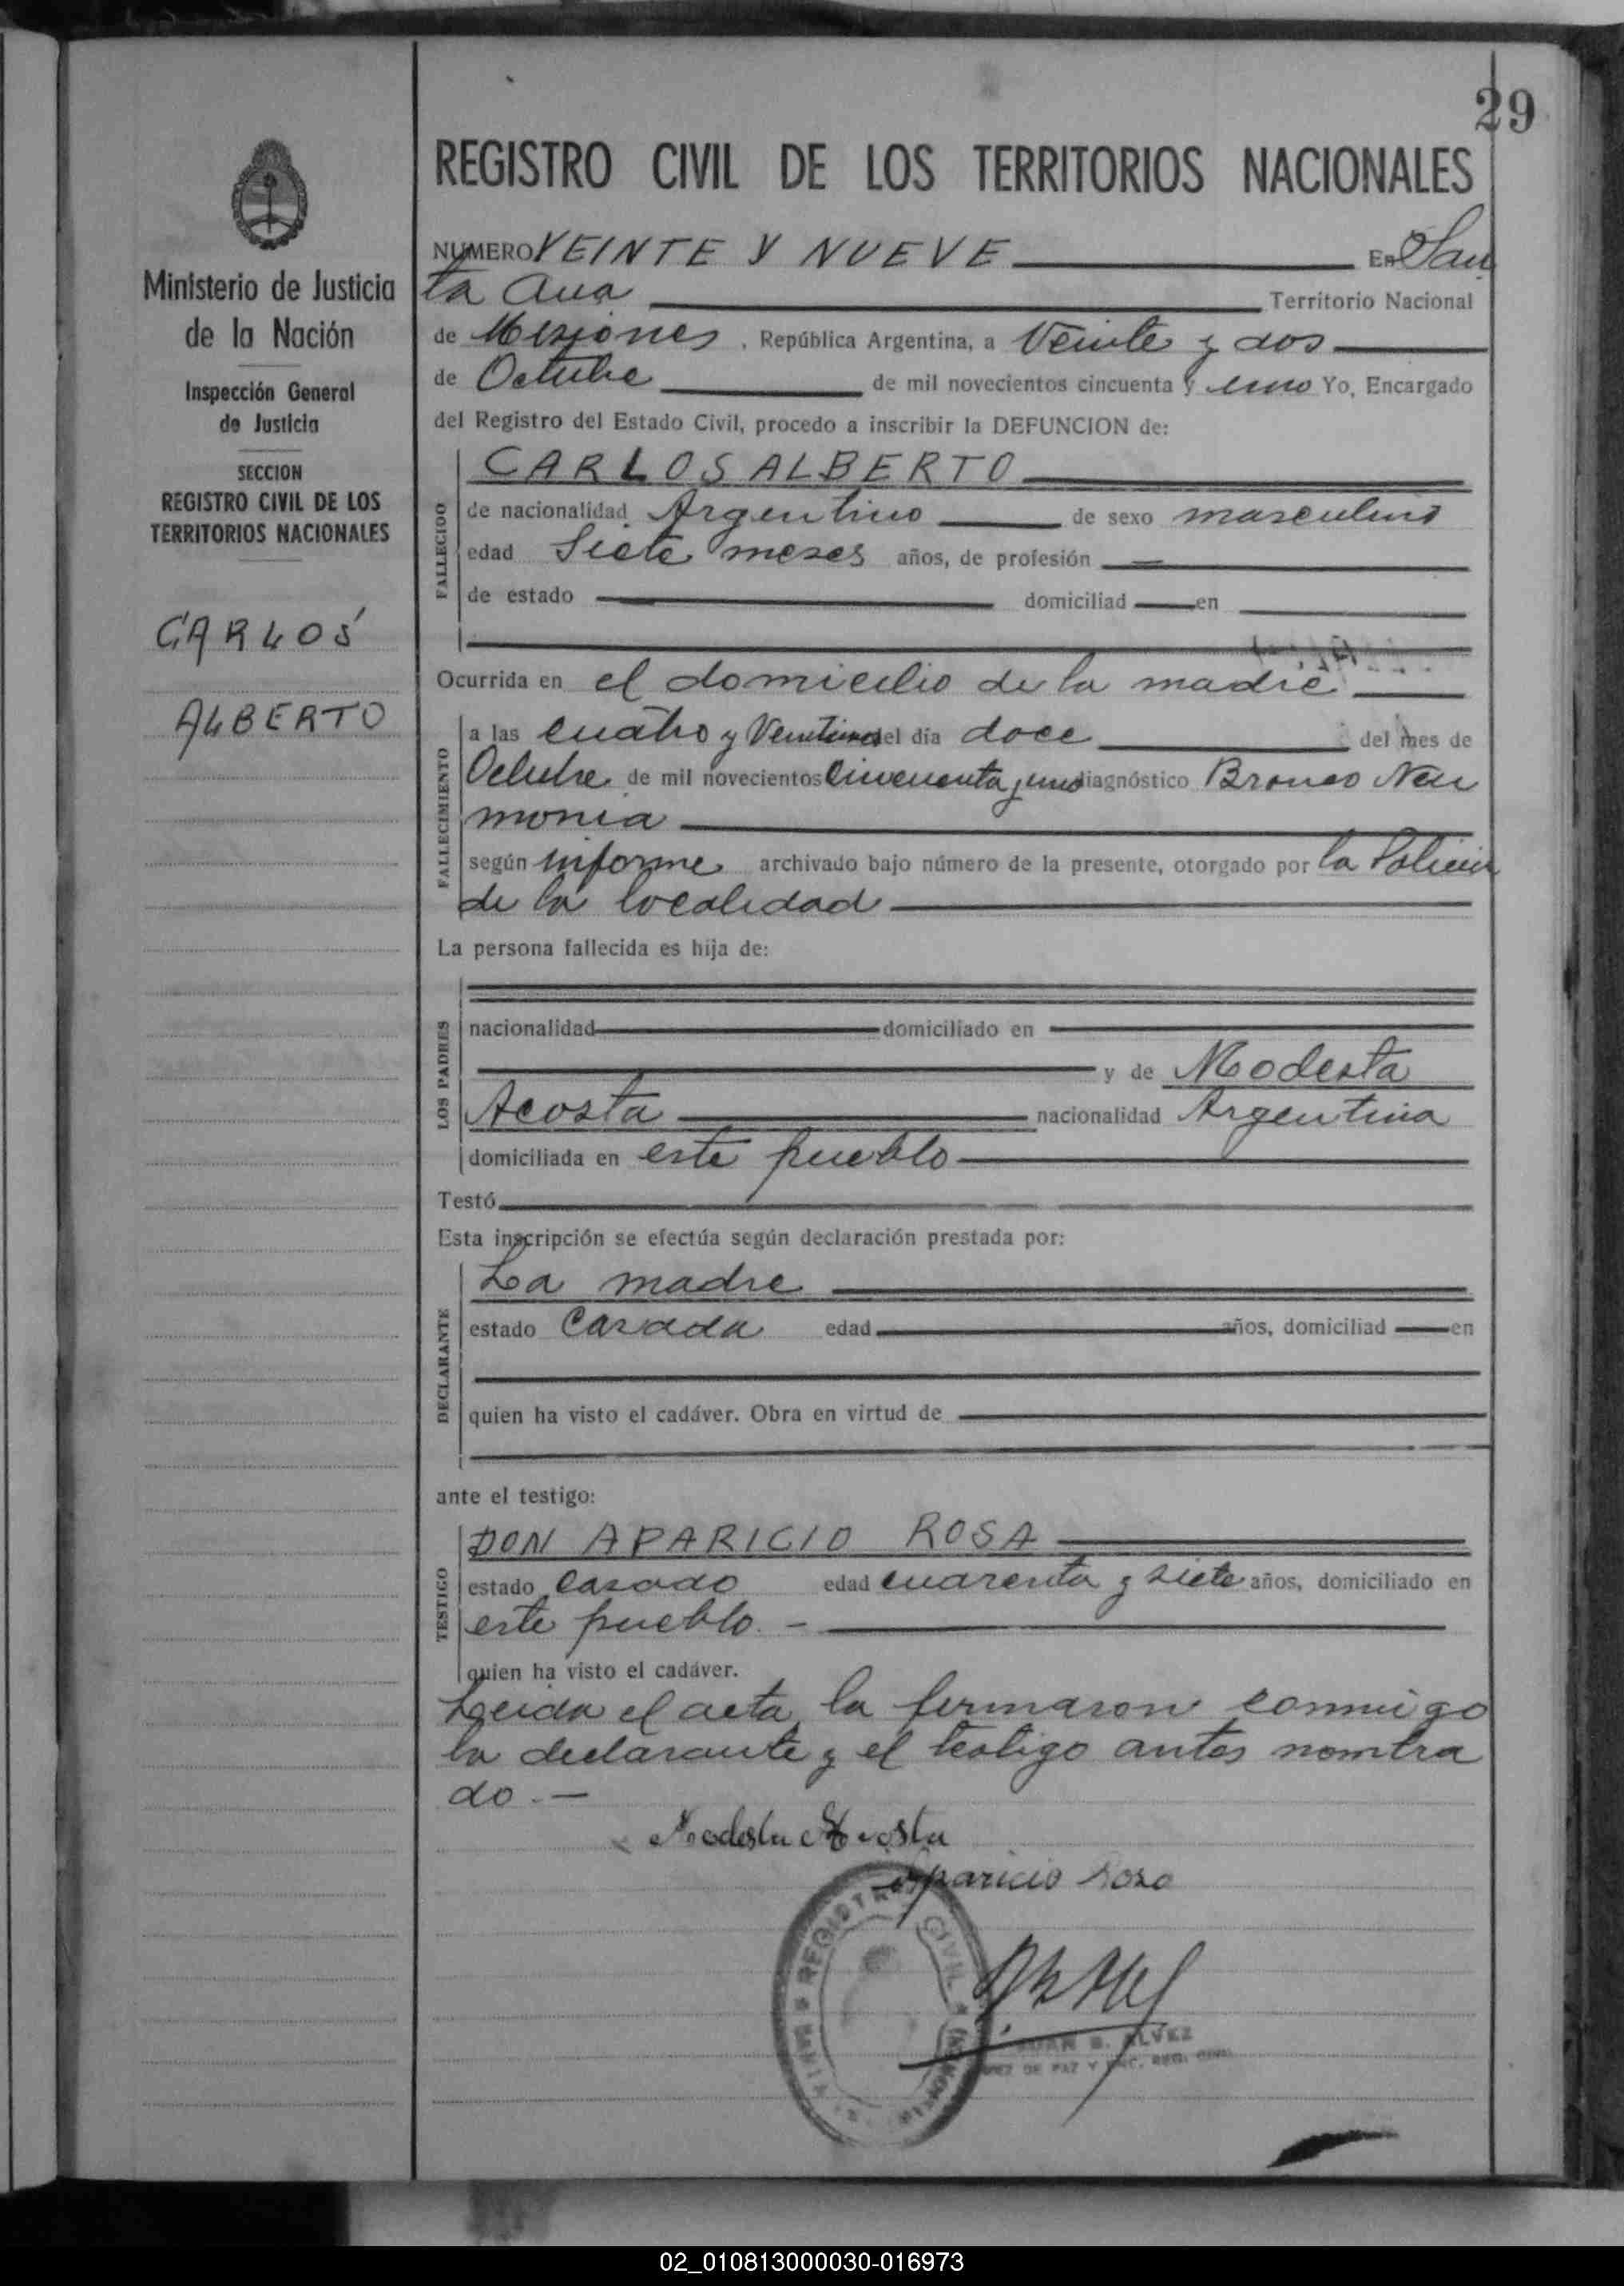 29
REGISTRO CIVIL DE LOS TERRITORIOS NACIONALES
Ministerio de Justicia
de la Nación
Inspección General
de Justicia
SECCION
REGISTRO CIVIL DE LOS
TERRITORIOS NACIONALES
CARLOS
ALBERTO
NUMERO VEINTE Y NUEVE En San
ta Ana Territorio Nacional
de Misiones, República Argentina, a Veinte y dos
de Octubre de mil novecientos cincuenta y uno Yo, Encargado
del Registro del Estado Civil, procedo a inscribir la DEFUNCION de:
FALLECIDO
CARLOS ALBERTO
de nacionalidad Argentino de sexo masculino
edad Siete meses años, de profesión
de estado domiciliad en
Ocurrida en el domicilio de la madre
FALLECIMIENTO
a las cuatro y del día doce del mes de
Octubre de mil novecientos cincuenta y uno diagnóstico Bronco Neu
monia
según informe archivado bajo número de la presente, otorgado por la Policia
de la localidad
La persona fallecida es hija de:
LOS PADRES
nacionalidad domiciliado en
y de Modesta
Acosta nacionalidad Argentina
domiciliada en este pueblo
Testó
Esta inscripción se efectúa según declaración prestada por:
DECLARANTE
La madre
estado Casada edad años, domiciliad en
quien ha visto el cadáver. Obra en virtud de
ante el testigo:
TESTIGO
DON APARICIO ROSA
estado casado edad cuarenta y siete años, domiciliado en
este pueblo. -
quien ha visto el cadáver.
Leida el acta, la firmaron conmigo
la declarante y el testigo antes nombra
do. -
Modesta Acosta
Aparicio Rosa
REGISTRO CIVIL
JUAN B. ALVEZ
JUEZ DE PAZ Y ENC. REG. CIVIL
02_010813000030-016973